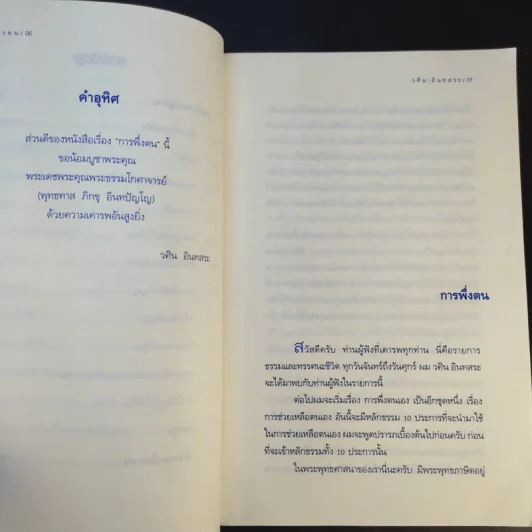 คำอุทิศ
ส่วนดีของหนังสือเรื่อง "การพึ่งตน" นี้
ขอน้อมบูชาพระคุณ
พระเดชพระคุณพระธรรมโกศาจารย์
(พุทธทาส ภิกขุ อินทปัญโญ)
ด้วยความเคารพอันสูงยิ่ง
วศิน อินทสระ
วศิน อินทสระ/07
การพึ่งตน
สวัสดีครับ ท่านผู้ฟังที่เคารพทุกท่าน นี่คือรายการ
ธรรมและทรรศนะชีวิต ทุกวันจันทร์ถึงวันศุกร์ ผม วศิน อินทสระ
จะได้มาพบกับท่านผู้ฟังในรายการนี้
ต่อไปผมจะเริ่มเรื่อง การพึ่งตนเอง เป็นอีกชุดหนึ่ง เรื่อง
การช่วยเหลือตนเอง อันนี้จะมีหลักธรรม 10 ประการที่จะนำมาใช้
ในการช่วยเหลือตนเอง ผมจะพูดปรารภเบื้องต้นไปก่อนครับ ก่อน
ที่จะเข้าหลักธรรมทั้ง 10 ประการนั้น
ในพระพุทธศาสนาของเรานี่นะครับ มีพระพุทธภาษิตอยู่